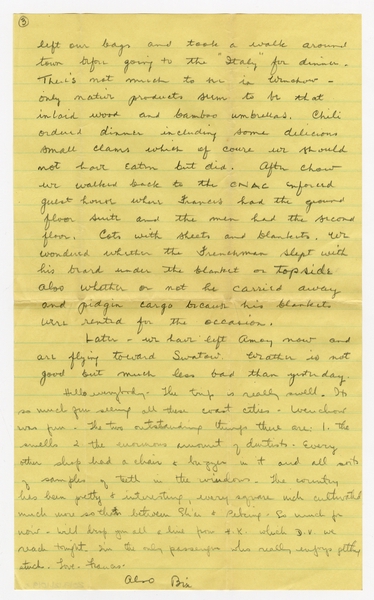 ③
left our bags and took a walk around
town before going to the "Italy" for dinner.
There's not much to see in Wenchow -
only native products seem to be that
inlaid wood and bamboo umbrellas. Chili
ordered dinner including some delicious
small clams which of course we should
not have eaten but did. After chow
we walked back to the CNAC
guest house where Francis had the ground
floor suite and the men had the second
floor. Cots with sheets and blankets. We
wondered whether the Frenchman slept with
his beard under the blanket or topside
also whether or not he carried away
and pidgin cargo because his blankets
were rented for the occasion.
Later - we have left Amoy now and
are flying toward Swatow. Weather is not
good but much less bad than yesterday.
Hello everybody - The trip is really swell. Its
so much fun seeing all these coast cities - Wenchow
was fun. The two outstanding things there are: 1. the
smells 2 the enormous amount of dentists. Every
other shop had a chair & buzzer in it and all sorts
of samples of teeth in the windows. The country
has been pretty & interesting, every square inch cultivated
much more so than between S'hai & Peking. So much for
now - will drop you all a line from H.K. which D.V. we
reach tonight. Im the only passenger who really enjoys
stuck. Love Francis.
Also Bix